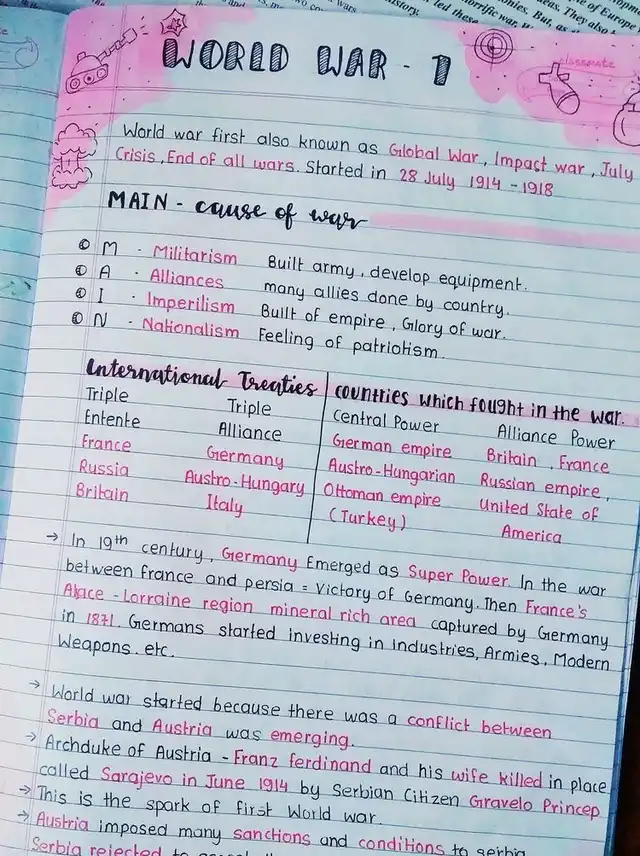 nies. But, as
eas. They also
le of Europe
history.
led these
WORLD WAR - 1
classmate
World war first also known as Global War, Impact war, July
Crisis, End of all wars. Started in 28 July 1914 - 1918
MAIN - cause of war
M - Militarism Built army, develop equipment.
A - Alliances many allies done by country.
I - Imperilism Built of empire, Glory of war.
N - Nationalism Feeling of patriotism.
International Treaties countries which fought in the war.
Triple Triple Central Power Alliance Power
Entente Alliance German empire Britain, France
France Germany Austro-Hungarian Russian empire,
Russia Austro-Hungary Ottoman empire United State of
Britain Italy (Turkey) America
→ In 19th century, Germany Emerged as Super Power. In the war
between france and persia = Victory of Germany. Then France's
Alace - Lorraine region mineral rich area captured by Germany
in 1871. Germans started investing in Industries, Armies, Modern
Weapons. etc.
→ World war started because there was a conflict between
Serbia and Austria was emerging.
→ Archduke of Austria - Franz ferdinand and his wife killed in place
called Sarajevo in June 1914 by Serbian Citizen Gravelo Princep
→ This is the spark of first World war.
→ Austria imposed many sanctions and conditions to serbia
Serbia rejected to